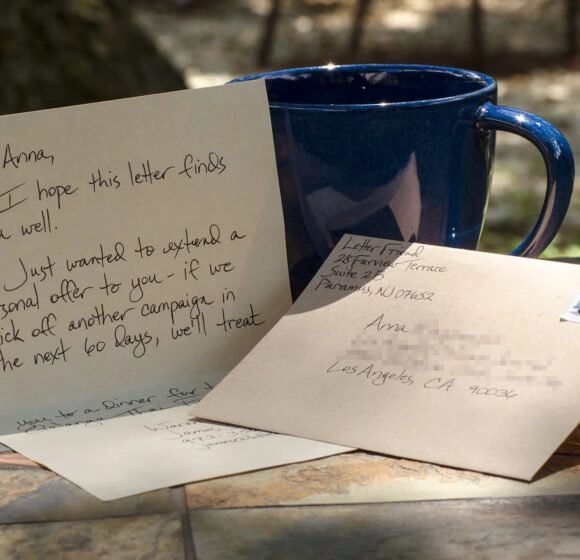 Anna,
I hope this letter finds
u well.
Just wanted to extend a
rsonal offer to you - if we
ick off another campaign in
he next 60 days, we'll treat
you to a Dinner for
Letter Friend
28 Farview Terrace
Suite 25
Paramus, NJ 07652
Anna
Los Angeles, CA 90036